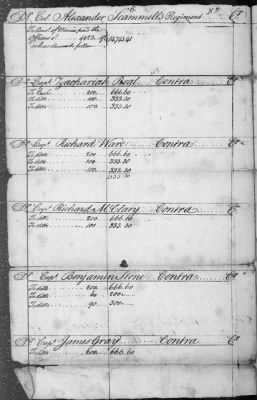 Dr Col. Alexander Scammell's Regiment Cr
To
Officers
Dr Capt Zachariah Beal Contra Cr
To Cash 200 666.60
To ditto 100 333.30
To ditto 100 333.30
Dr Capt Richard Ware Contra Cr
To ditto 200 666.60
To ditto 100 333.30
To ditto 100 333.30
Dr Capt Richard McClary Contra Cr
To ditto 200 666.66
To ditto 100 333.30
Dr Capt Benjamin Stone Contra Cr
To ditto 200 666.60
To ditto 60 200
To ditto 90 300
Dr Capt James Gray Contra Cr
To ditto 200 666.60